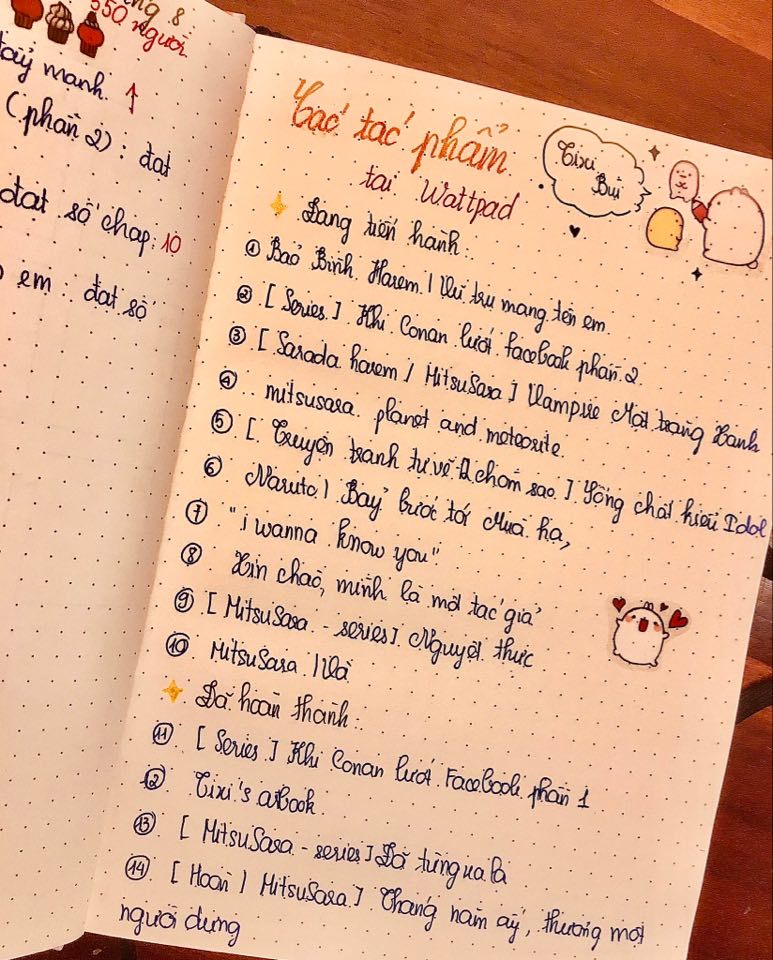 ng 8:
550 người
tay mạnh ↑
(phần 2): đạt
đạt số chap: 10
em: đạt số
Các tác phẩm
tại Wattpad
Tixi
Bụi
Đang tiến hành:
① Bảo Bình Harem | Vũ trụ mang tên em.
② [ Series ] Khi Conan lướt facebook phần 2.
③ [ Sarada harem / MitsuSara ] Vampire Mặt trăng Xanh
④ mitsusara. planet and meteorite.
⑤ [ Truyện tranh tự vẽ 12 chòm sao ] Sống chất kiểu Idol
⑥ Naruto | Bảy bước tới Mùa hạ,
⑦ "i wanna know you"
⑧ Xin chào, mình là một tác giả
⑨ [ MitsuSara - series ] Nguyệt thực
⑩ MitsuSara | Và
Đã hoàn thành:
⑪ [ Series ] Khi Conan lướt Facebook phần 1
⑫ Tixi's artbook
⑬ [ MitsuSara - series ] Đã từng
⑭ [ Hoàn | MitsuSara ] Tháng năm ấy, thương một
người dưng